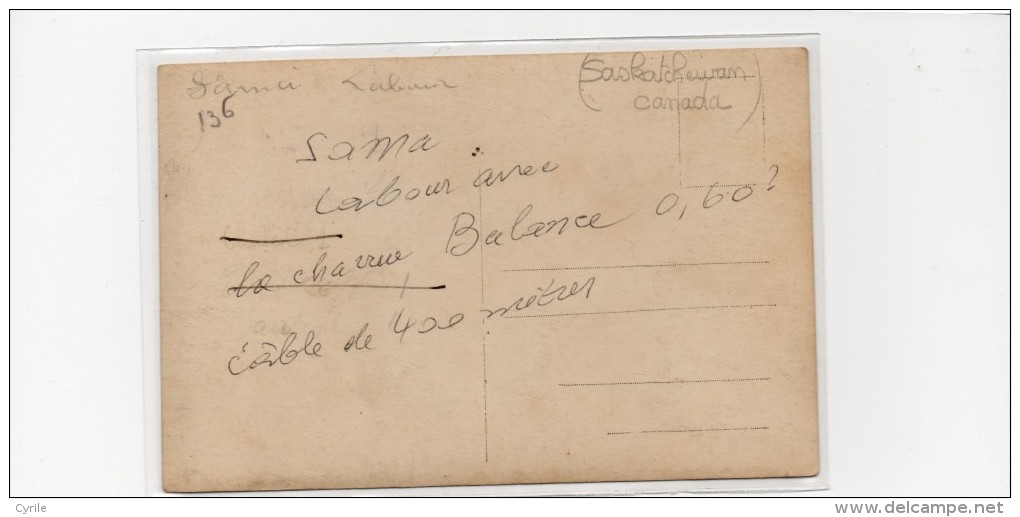 Sama Labour
(Saskatchewan
canada)
136
Sama :
Labour avec
la charrue Balance 0,60?
câble de 400 mètres
Cyrile
www.delcampe.net